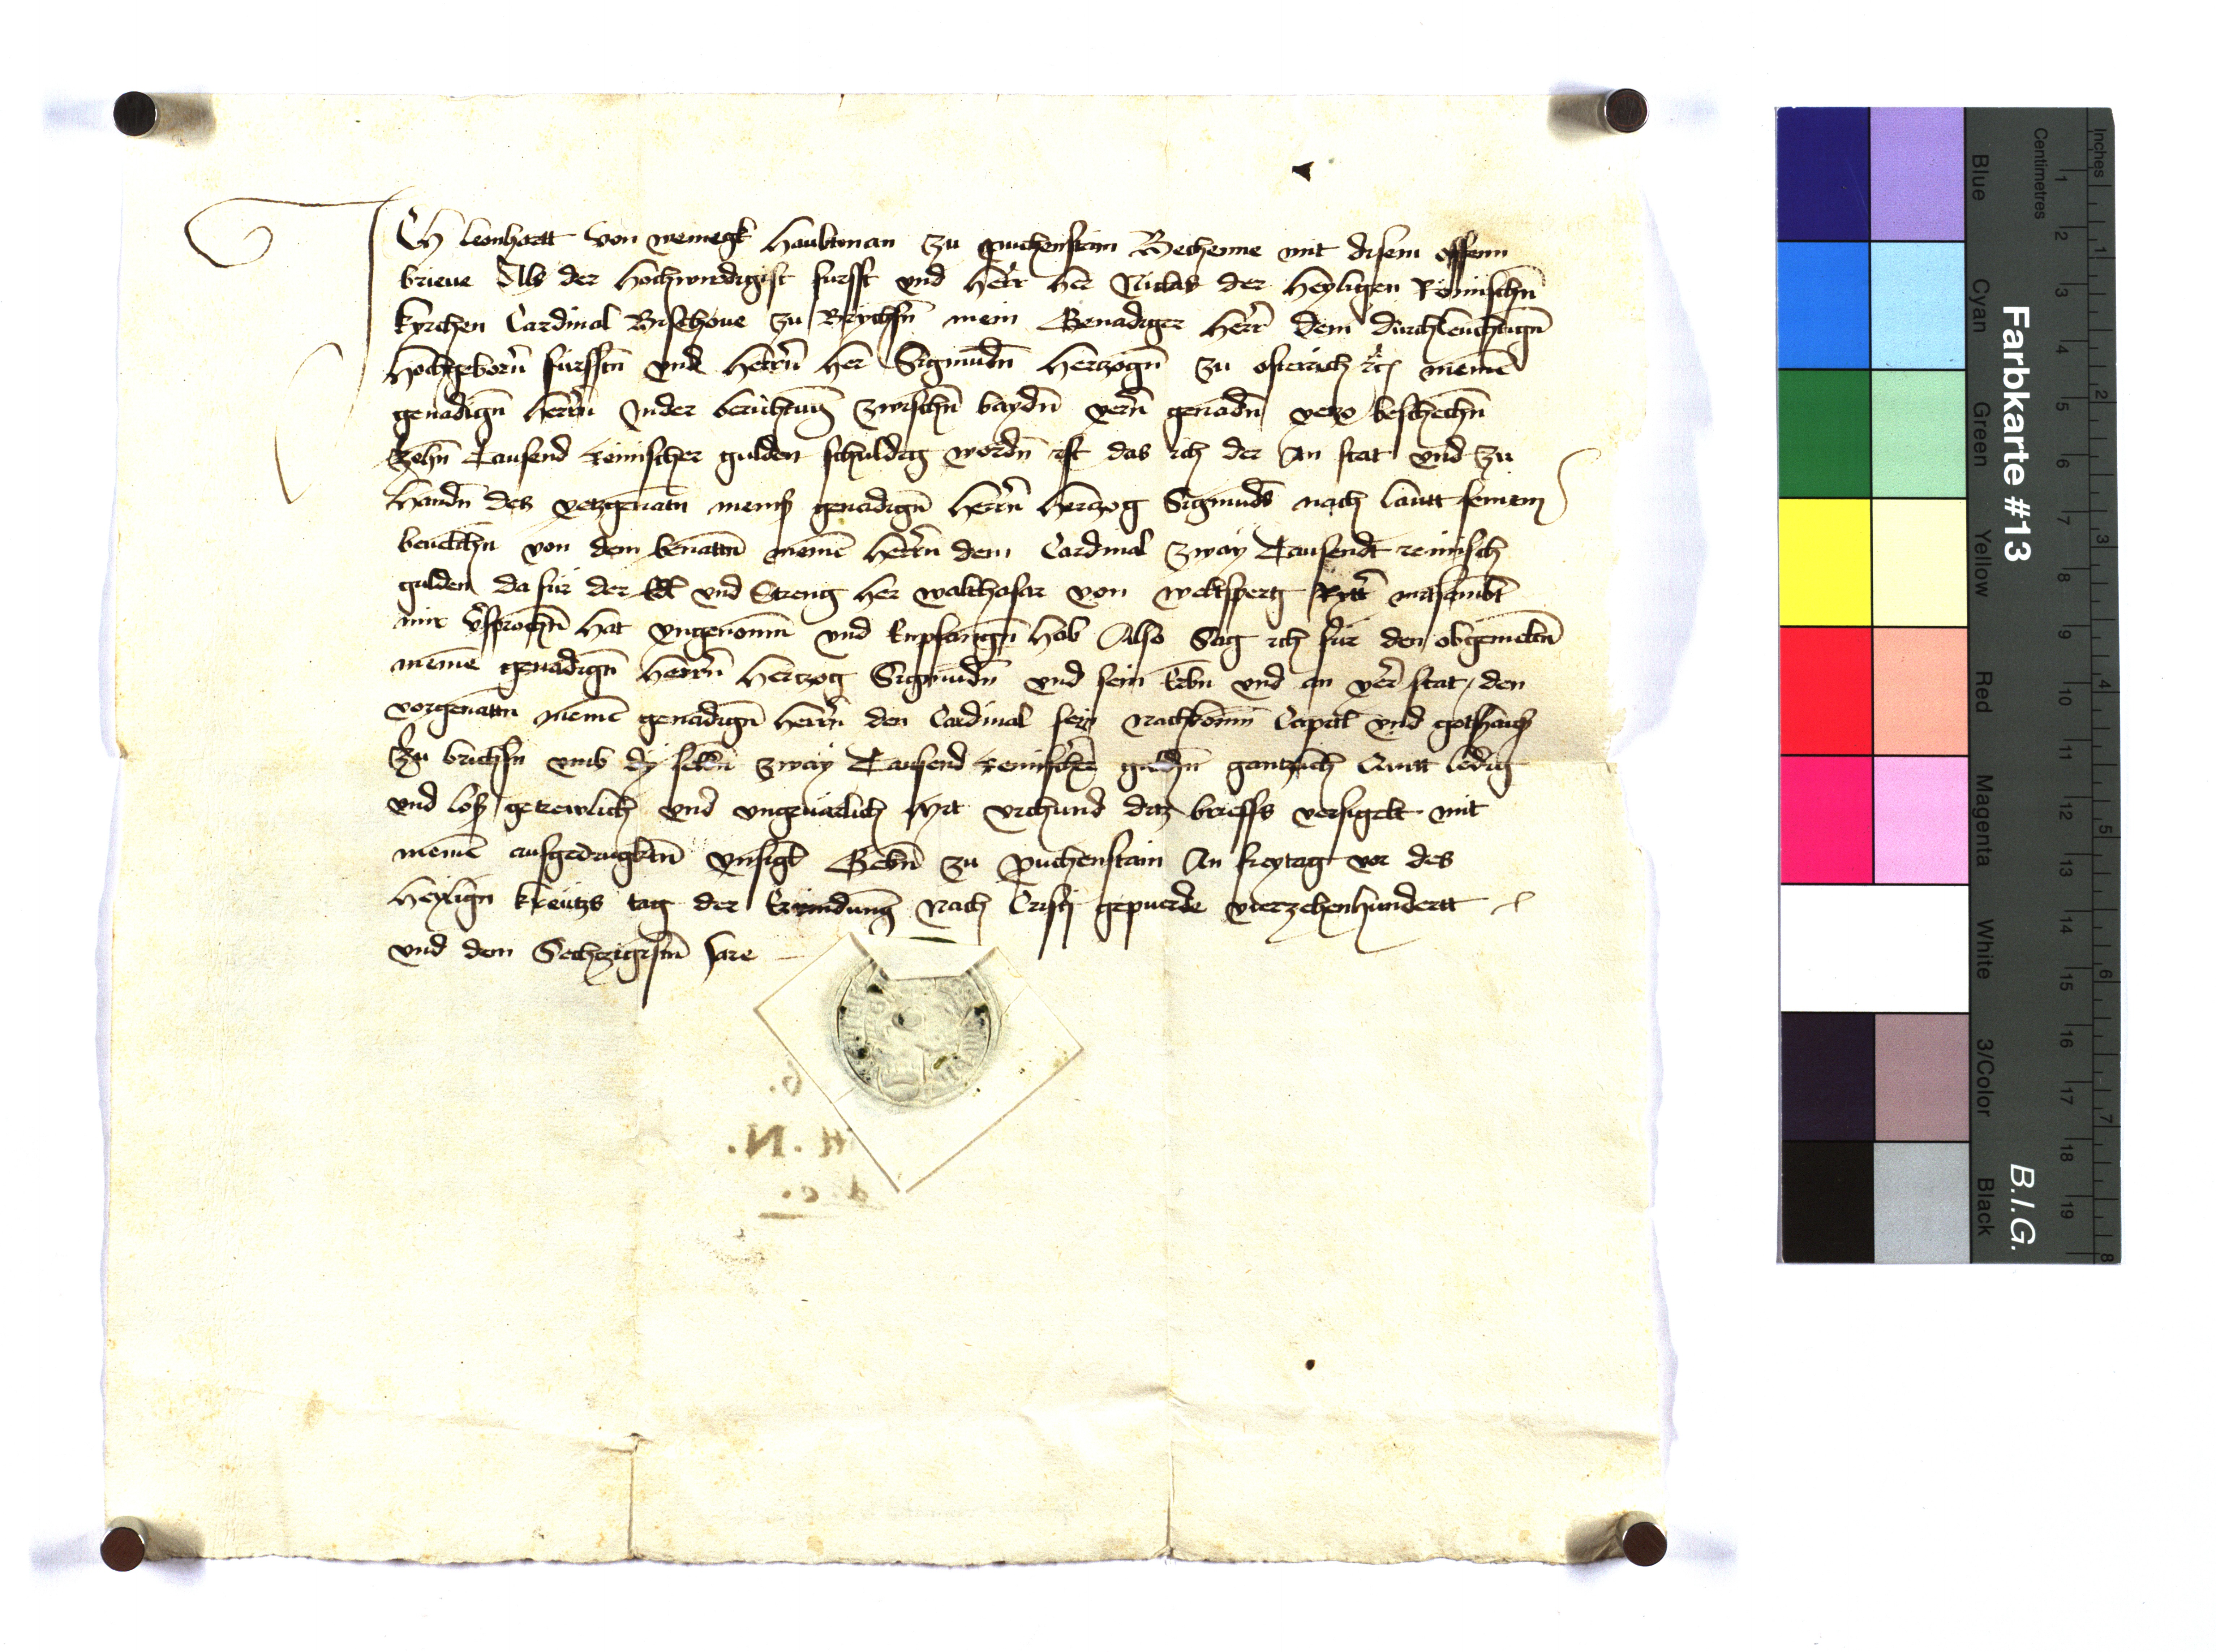 Ich leonhartt von weinegk haubtman zu puchenstain Bechenne mit disem offenn
brieue Als der hochwirdigist furst vnd herr her Niclas der heyligen Römischn̄
kyrchen Cardinal Bischoue zu Brychsn̄ mein Genadiger herr dem durchleuchtign̄
hochgeborn̄ furstn̄ vnd herrn̄ her Sigmundn̄ hertzogn̄ zu osterich etc meinē
genadign̄ herrn̄ Inder berichtung zwischn̄ baydn̄ yern̄ genadn̄ yetzo beschechn̄
Zehn̄ Tausend reinischer gulden schuldig wordn̄ ist das ich der An stat vnd zu
handn̄ des yetzgenatn̄ meins genadign̄ herrn̄ hertzog Sigmunds nach lautt seinem
beuelchn̄ von dem benattn̄ meinē herrn̄ dem Cardinal zway Tausendt reinisch
gulden da für der Edl vnd Streng her walthasar von welsperg Rytter mitsambt
mir v̄sprochn̄ hat yngenomn̄ vnd Enpfangn̄ hab Also Sag ich für den obgemeltn̄
meinē genadign̄ herrn̄ hertzog Sigmundn̄ vnd sein Erbn̄ vnd an yer stat den
vorgenattn̄ meinē genadign̄ herrn̄ den Cardinal sein nachkomn̄ Capitl vnd gotshaus
zu brichsn̄ vmb dy selbn̄ zway Tausend reinischer guldn̄ gantzlich Quitt ledig
vnd los getrewlich vnd vngeuarlich Mit vrchund ditz brieffs versigelt mit
meinē aufgedrugktn̄ ynsigl Gebn̄ zu puchenstain An freytag vor des
heylign̄ kreutzs tag der Erfindung Nach Cristj gepuerde vierzehenhundertt
vnd dem Sechtzigistn̄ Jare
6.
N.
d. c.
Farbkarte #13
B.I.G.
Inches
Centimetres
1 2 3 4 5 6 7 8 9 10 11 12 13 14 15 16 17 18 19
1 2 3 4 5 6 7 8
Blue
Cyan
Green
Yellow
Red
Magenta
White
3/Color
Black